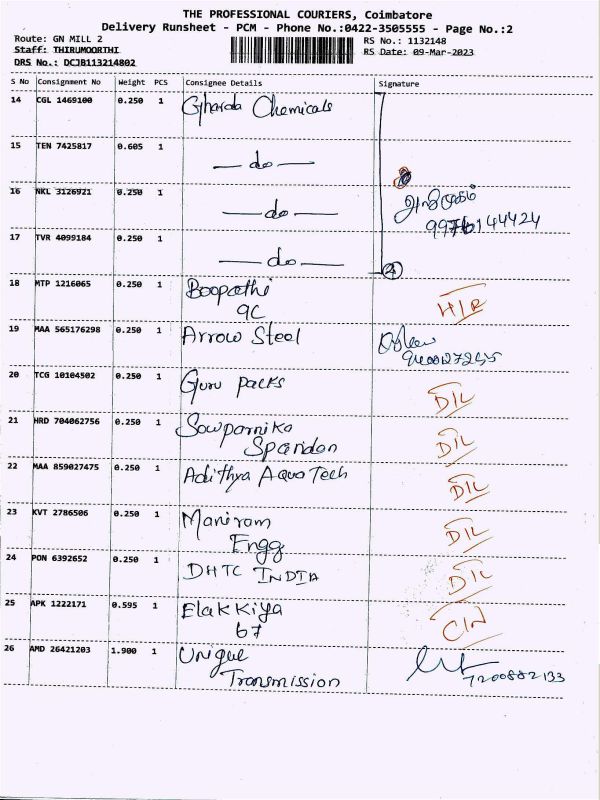 THE PROFESSIONAL COURIERS, Coimbatore
Delivery Runsheet - PCM - Phone No.:0422-3505555 - Page No.:2
Route: GN MILL 2
RS No.: 1132148
Staff: THIRUMOORTHI
RS Date: 09-Mar-2023
DRS No.: DCJB113214802
S No Consignment No Weight PCS Consignee Details Signature
14 CGL 1469100 0.250 1 Gharda Chemicals
15 TEN 7425817 0.605 1 — do —
16 NKL 3126921 0.250 1 — do —
17 TVR 4099184 0.250 1 — do — 4
18 MTP 1216065 0.250 1 Boopathi
9C H/R
19 MAA 565176298 0.250 1 Arrow Steel
20 TCG 10104502 0.250 1 Guru packs D/L
21 HRD 704062756 0.250 1 Sowparnika
Spandan D/L
22 MAA 859027475 0.250 1 Adithya Aqua Tech D/L
23 KVT 2786506 0.250 1 Maniram
Engg D/L
24 PON 6392652 0.250 1 DHTC INDIA D/L
25 APK 1222171 0.595 1 Elakkiya
67 C/N
26 AMD 26421203 1.900 1 Unique
Transmission 7200882133